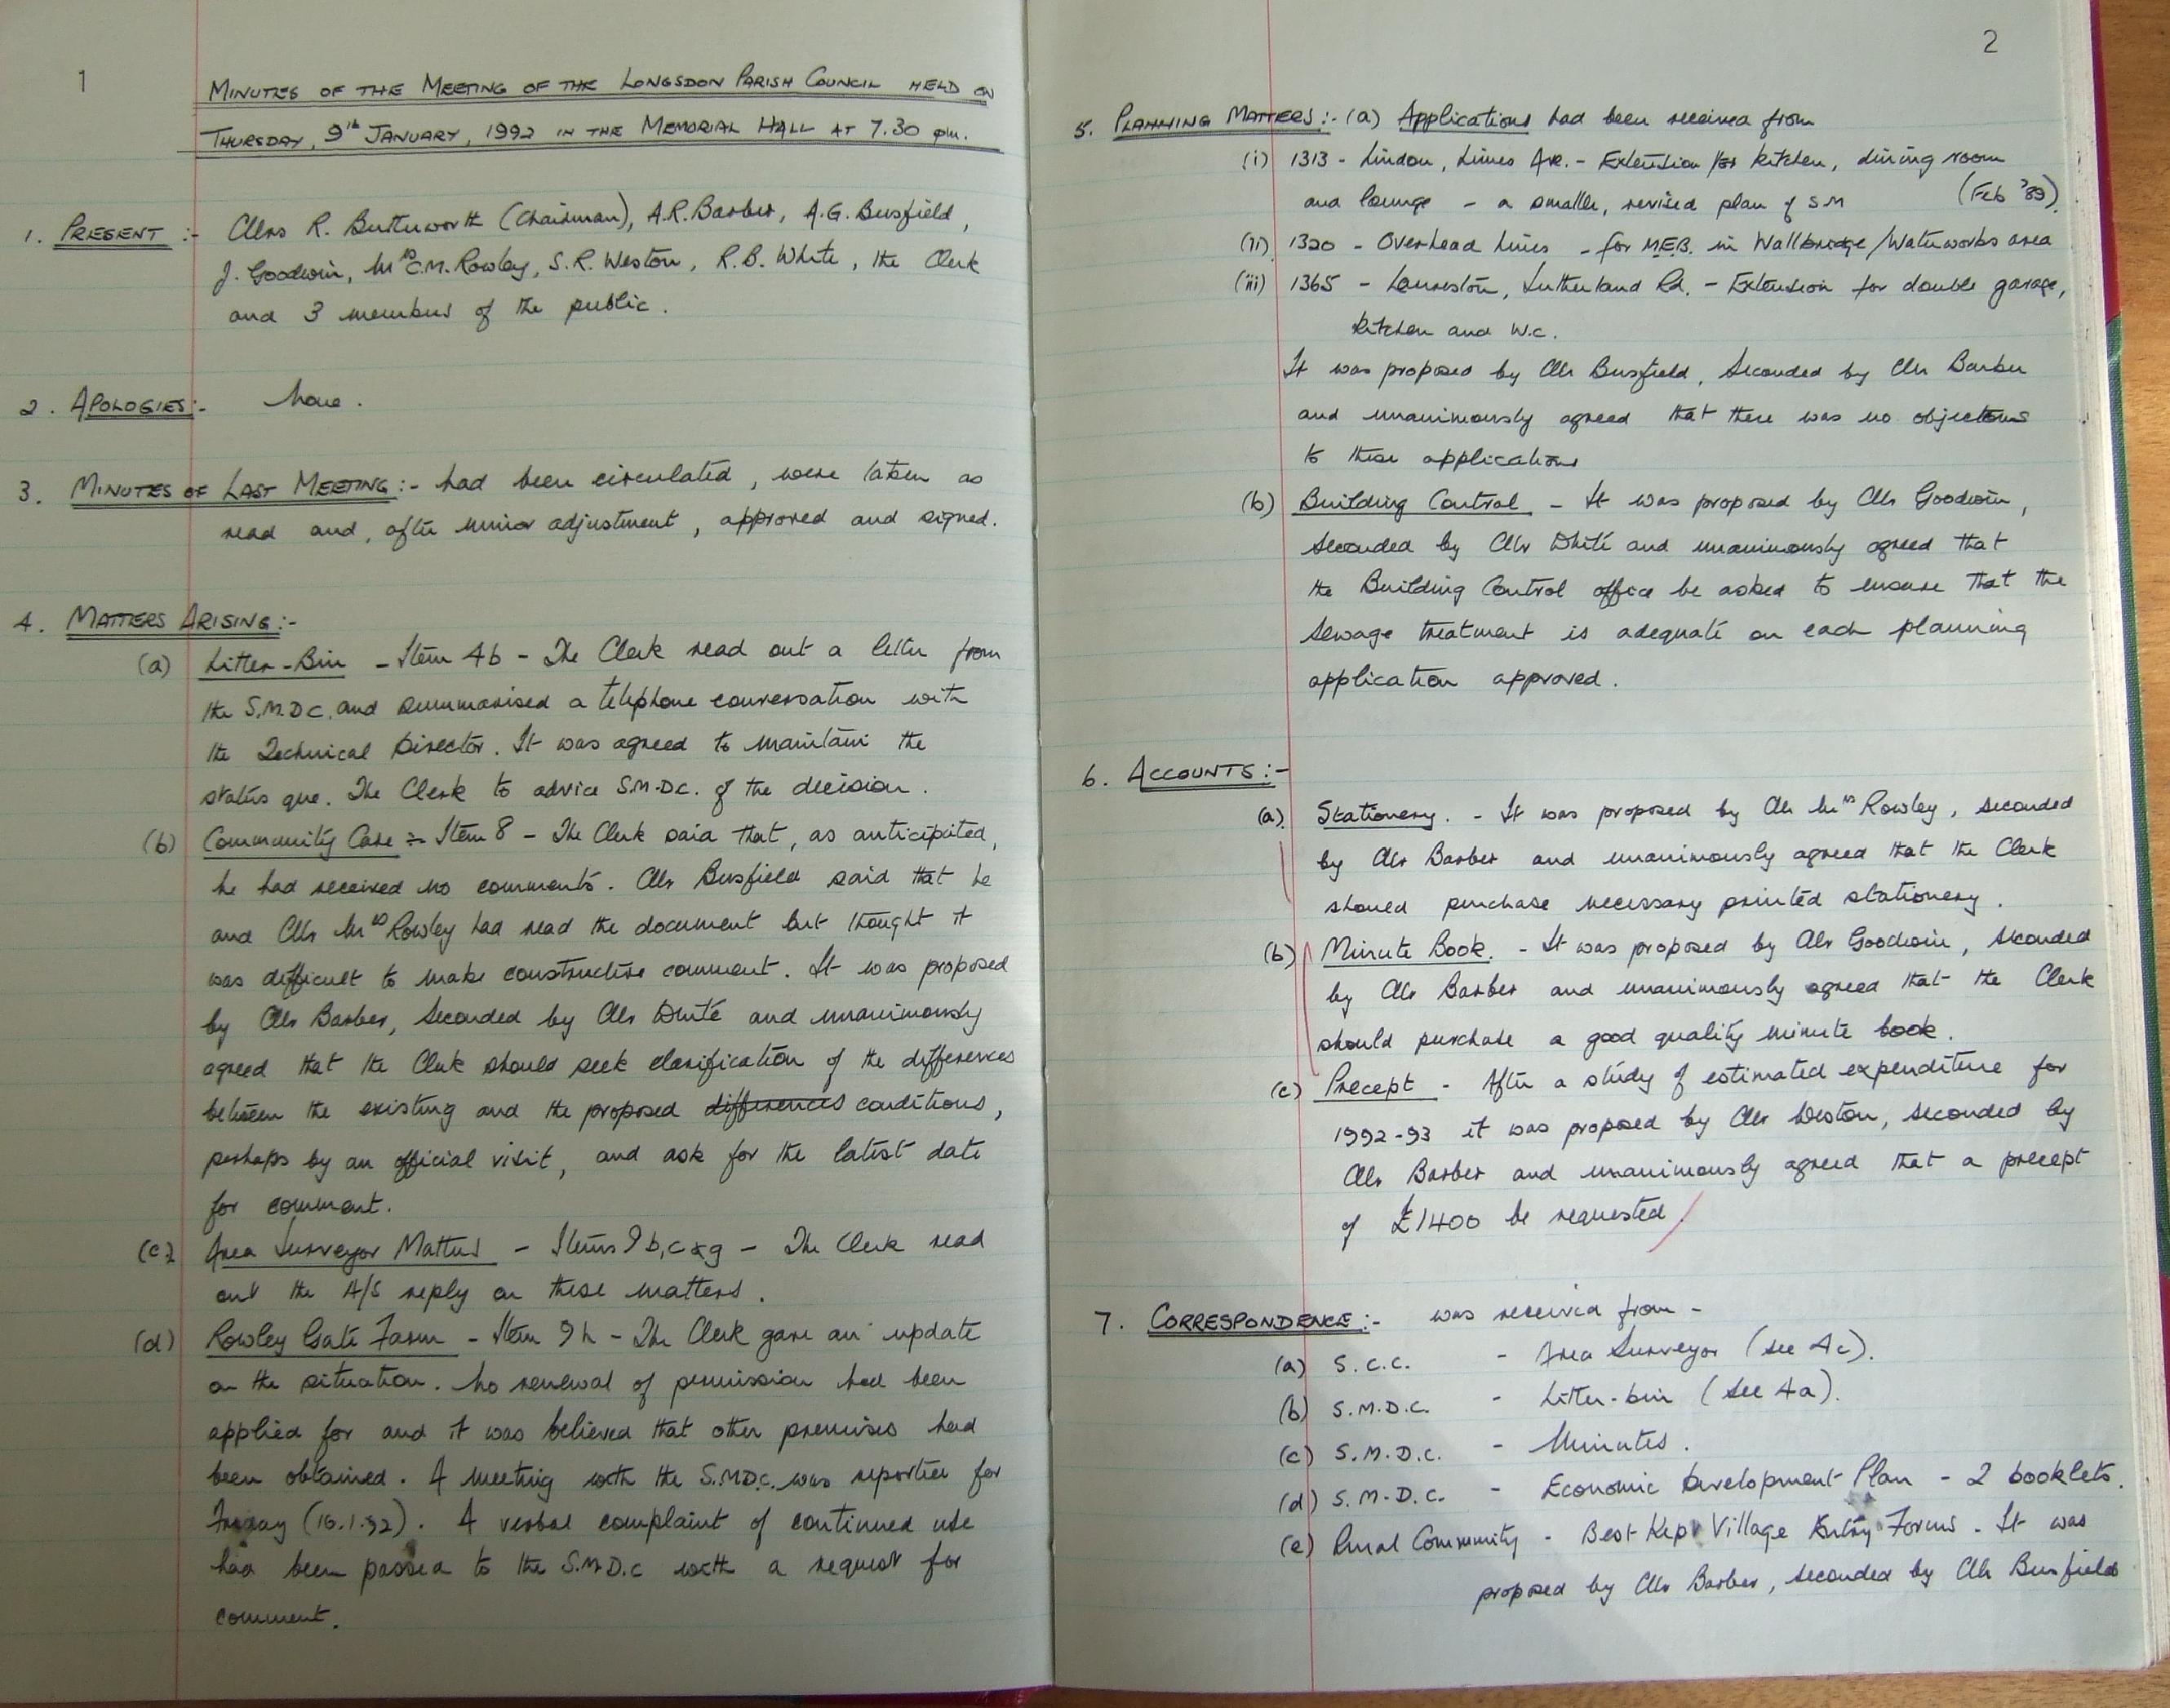 1
MINUTES OF THE MEETING OF THE LONGSDON PARISH COUNCIL HELD ON
THURSDAY, 9th JANUARY, 1992 IN THE MEMORIAL HALL AT 7.30 pm.
1. PRESENT :- Cllrs R. Butterworth (Chairman), A.R. Barber, A.G. Busfield,
J. Goodwin, Mrs C.M. Rowley, S.R. Weston, R.B. White, the Clerk
and 3 members of the public.
2. APOLOGIES:- None.
3. MINUTES OF LAST MEETING:- had been circulated, were taken as
read and, after minor adjustment, approved and signed.
4. MATTERS ARISING:-
(a) Litter-Bin - Item 4b - The Clerk read out a letter from
the S.M.D.C. and summarised a telephone conversation with
the Technical Director. It was agreed to maintain the
status que. The Clerk to advice S.M.D.C. of the decision.
(b) Community Care :- Item 8 - The Clerk said that, as anticipated,
he had received no comments. Cllr Busfield said that he
and Cllr Mrs Rowley had read the document but thought it
was difficult to make constructive comment. It was proposed
by Cllr Barber, seconded by Cllr White and unanimously
agreed that the Clerk should seek clarification of the differences
between the existing and the proposed differences conditions,
perhaps by an official visit, and ask for the latest date
for comment.
(c) Area Surveyor Matters - Items 9b,c & g - The Clerk read
out the A/S reply on these matters.
(d) Rowley Gate Farm - Item 9h - The Clerk gave an update
on the situation. No renewal of permission had been
applied for and it was believed that other premises had
been obtained. A meeting with the S.M.D.C. was reported for
Friday (10.1.92). A verbal complaint of continued use
had been passed to the S.M.D.C with a request for
comment.
2
5. PLANNING MATTERS:- (a) Applications had been received from
(i) 1313 - Lindon, Limes Ave. - Extension for kitchen, dining room
and lounge - a smaller, revised plan of SM (Feb '89).
(ii) 1320 - Overhead Lines - for M.E.B. in Wallbridge/Waterworks area
(iii) 1365 - Launston, Sutherland Rd. - Extension for double garage,
kitchen and W.C.
It was proposed by Cllr Busfield, seconded by Cllr Barber
and unanimously agreed that there was no objections
to these applications
(b) Building Control - It was proposed by Cllr Goodwin,
seconded by Cllr White and unanimously agreed that
the Building Control office be asked to ensure that the
sewage treatment is adequate on each planning
application approved.
6. ACCOUNTS:-
(a) Stationery. - It was proposed by Cllr Mrs Rowley, seconded
by Cllr Barber and unanimously agreed that the Clerk
should purchase necessary printed stationery.
(b) Minute Book. - It was proposed by Cllr Goodwin, seconded
by Cllr Barber and unanimously agreed that the Clerk
should purchase a good quality minute book.
(c) Precept - After a study of estimated expenditure for
1992-93 it was proposed by Cllr Weston, seconded by
Cllr Barber and unanimously agreed that a precept
of £1400 be requested
7. CORRESPONDENCE:- was received from -
(a) S.C.C. - Area Surveyor (see 4c).
(b) S.M.D.C. - Litter-bin (see 4a).
(c) S.M.D.C. - Minutes.
(d) S.M.D.C. - Economic Development Plan - 2 booklets.
(e) Rural Community - Best Kept Village Entry Forms. It was
proposed by Cllr Barber, seconded by Cllr Busfield